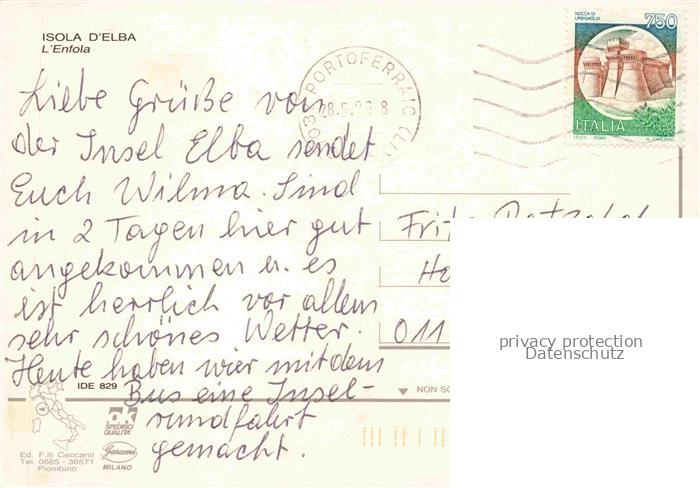 ISOLA D'ELBA
L'Enfola
ROCCA DI
URBISAGLIA
750
ITALIA
PORTOFERRAIO (LI)
28.5.96-8
Liebe Grüße von
der Insel Elba sendet
Euch Wilma. Sind
in 2 Tagen hier gut
angekommen u. es
ist herrlich vor allem
sehr schönes Wetter.
Heute haben wir mit dem
Bus eine Insel-
rundfahrt
gemacht.
Fritz
Ho
011
privacy protection
Datenschutz
IDE 829
NON SC
ok
SPEDISCI
QUALITÀ
Garami
MILANO
Ed. F.lli Ceccanti
Tel. 0565 - 36571
Piombino